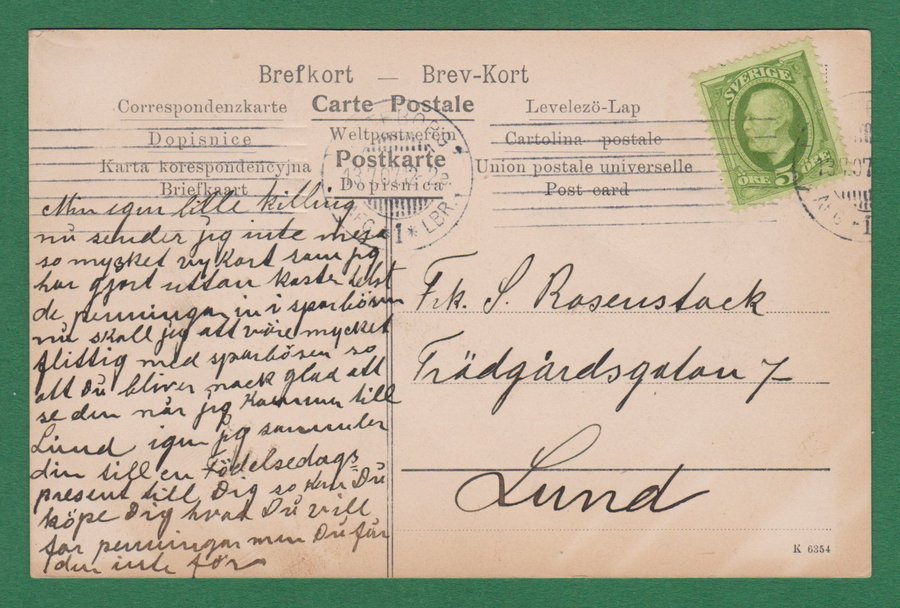 Brefkort — Brev-Kort
Correspondenzkarte Carte Postale Levelezö-Lap
Dopisnice Weltpostverein Cartolina postale
Karta korespondencyjna Postkarte Union postale universelle
Briefkaart Dopisnica Post card
SVERIGE
5
ÖRE
13.7.07
LBR.
1
Min egen lille killing
nu sender jeg inte mera
so mycket vykort som jeg
har gjort uttan kaster helst
de penningar in i sparbösen
nu skall jeg att väre mycket
flittig med sparbösen so
att Du bliver nock glad att
se den når jeg kommer till
Lund igen jeg sammler
din till en Födelsedags=
present till Dig so kan Du
köpe Dig hvad Du vill
for penningar men Du får
den inte för
Frk. S. Rosenstock
Trädgårdsgatan 7
Lund
K 6354